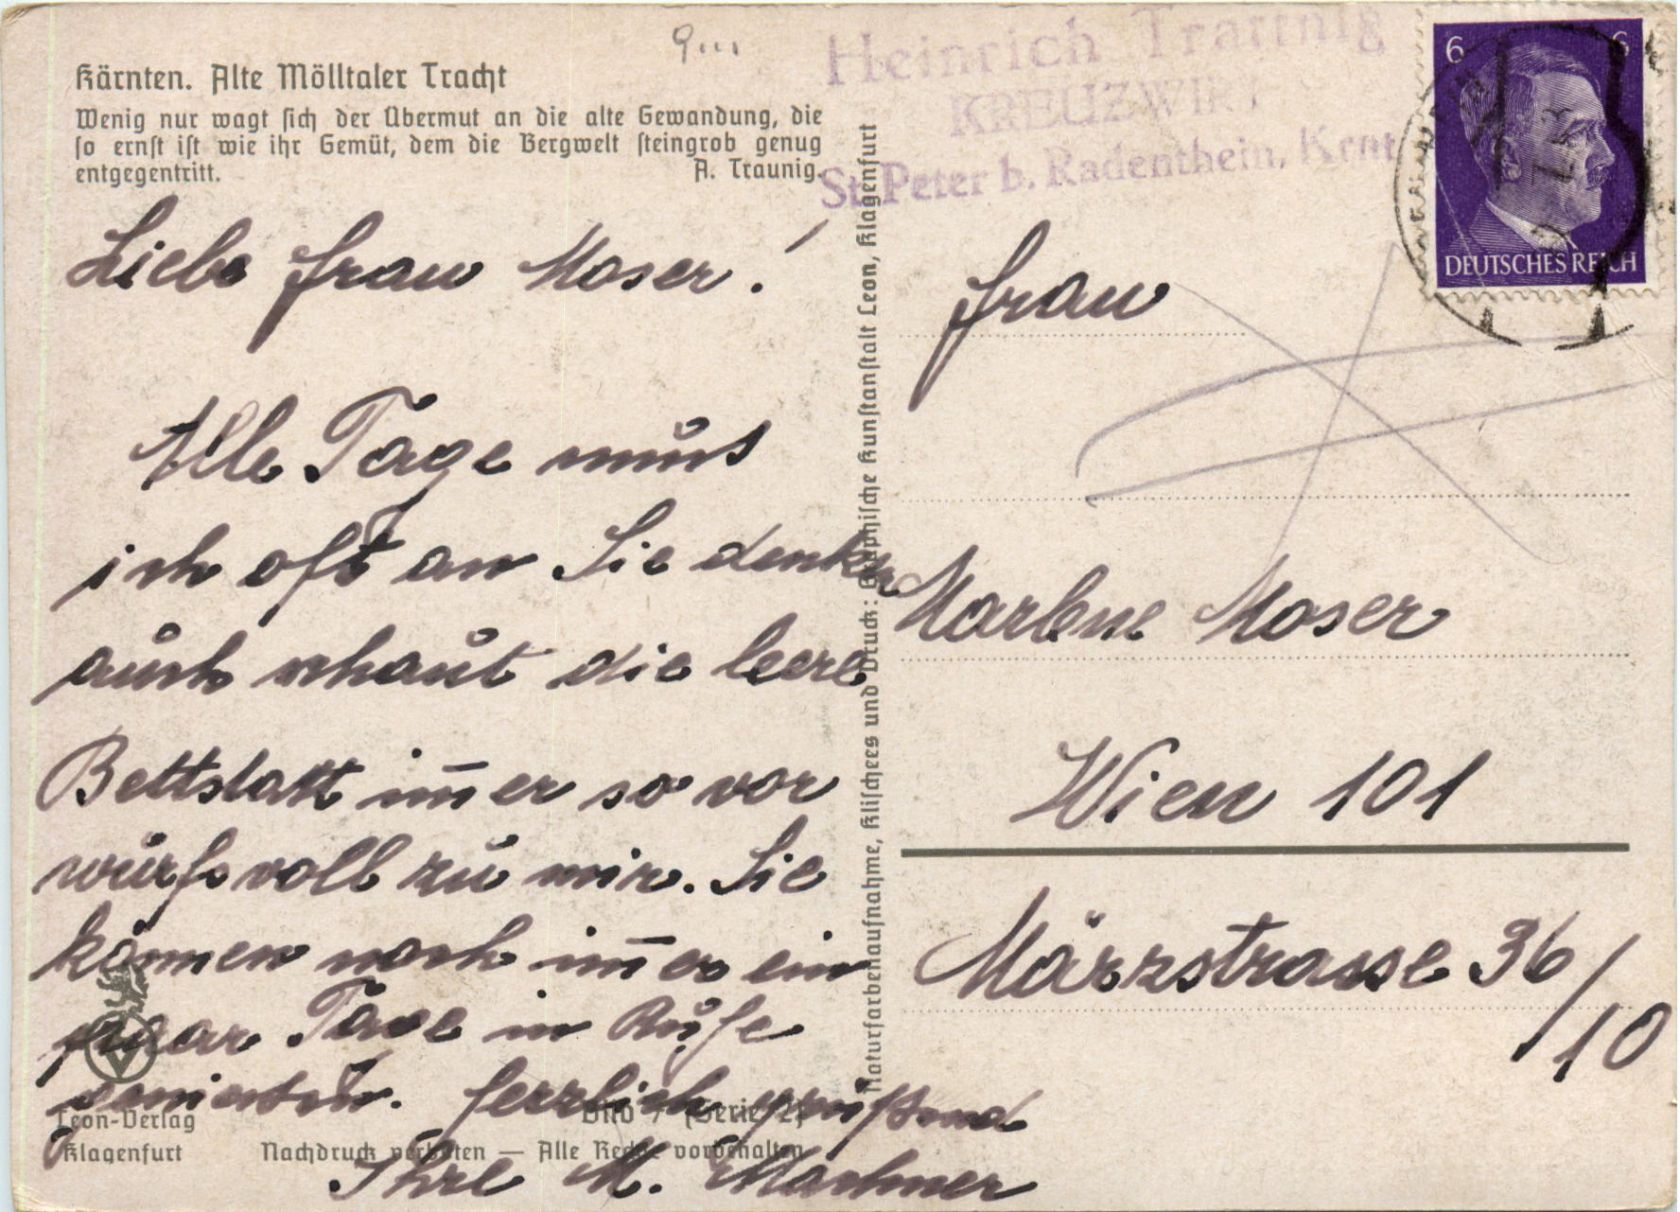 Kärnten. Alte Mölltaler Tracht
Wenig nur wagt sich der Übermut an die alte Gewandung, die
so ernst ist wie ihr Gemüt, dem die Bergwelt steingrob genug
entgegentritt. A. Traunig.
Liebe Frau Moser!
Alle Tage muss
ich oft an Sie denken
auch schaut die leere
Bettstatt im̅er so vor
wurfsvoll zu mir. Sie
können noch im̅er ein
paar Tage in Ruhe
Herzlich grüßend
Ihre M.
Leon-Verlag
Klagenfurt
Bild 7 (Serie 2)
Nachdruck verboten — Alle Rechte vorbehalten
Naturfarbenaufnahme, Klischees und Druck: Graphische Kunstanstalt Leon, Klagenfurt
Heinrich Traunig
KREUZWIRT
St. Peter b. Radenthein, Krnt
6 6
DEUTSCHES REICH
Frau
Marlene Moser
Wien 101
Märzstrasse 36/10